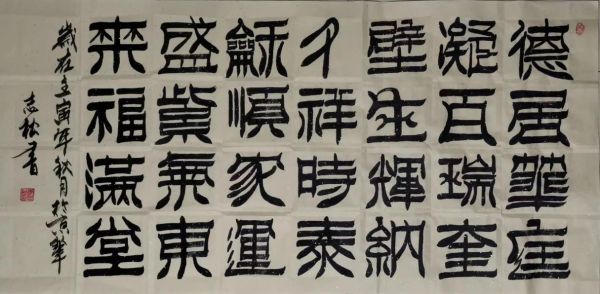 德居華庭
凝百瑞奎
壁生輝納
千祥時泰
龢順家運
盛紫氣東
來福滿堂
歲在壬寅年秋月於京
志松書